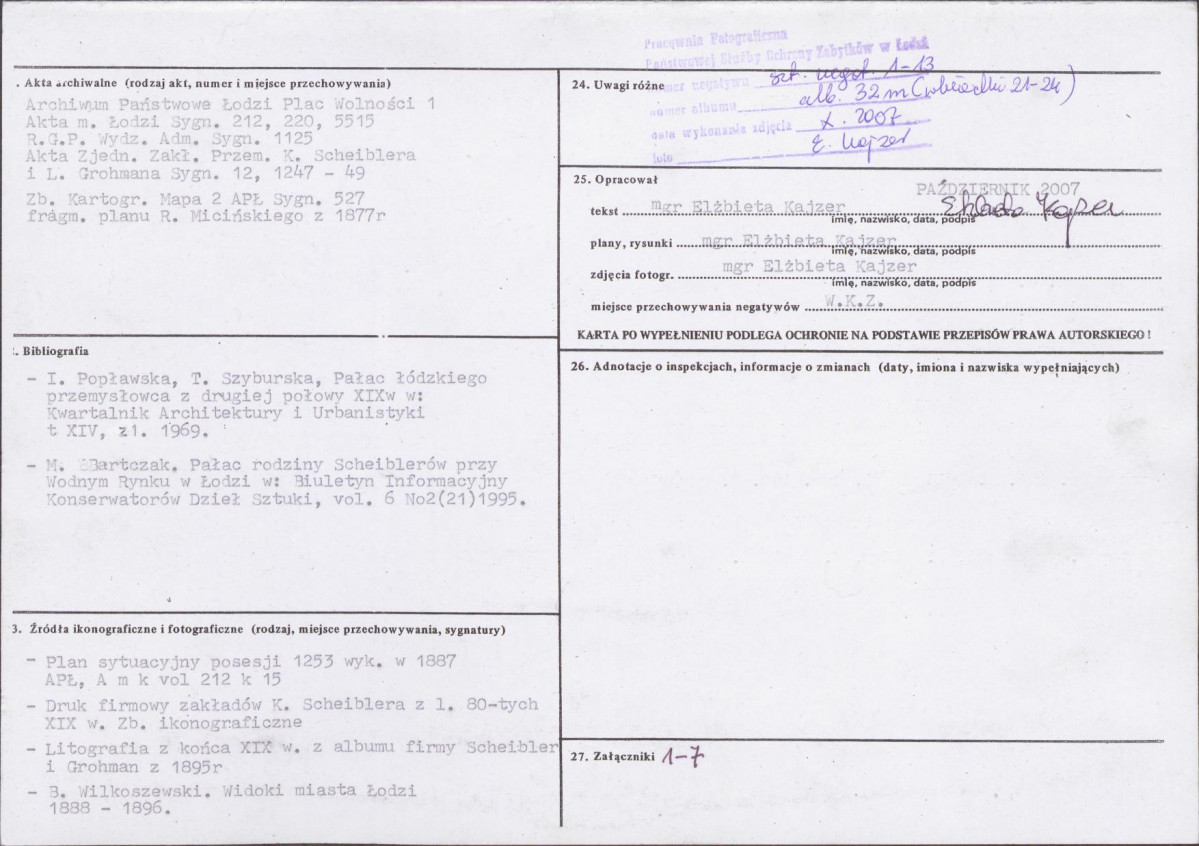 . Akta archiwalne (rodzaj akt, numer i miejsce przechowywania)
Archiwum Państwowe Łodzi Plac Wolności 1
Akta m. Łodzi Sygn. 212, 220, 5515
R.G.P. Wydz. Adm. Sygn. 1125
Akta Zjedn. Zakł. Przem. K. Scheiblera
i L. Grohmana Sygn. 12, 1247 - 49
Zb. Kartogr. Mapa 2 APŁ Sygn. 527
fragm. planu R. Micińskiego z 1877r
. Bibliografia
- I. Popławska, T. Szyburska, Pałac łódzkiego
przemysłowca z drugiej połowy XIXw w:
Kwartalnik Architektury i Urbanistyki
t XIV, z1. 1969.
- M. Bartczak. Pałac rodziny Scheiblerów przy
Wodnym Rynku w Łodzi w: Biuletyn Informacyjny
Konserwatorów Dzieł Sztuki, vol. 6 No2(21)1995.
3. Źródła ikonograficzne i fotograficzne (rodzaj, miejsce przechowywania, sygnatury)
- Plan sytuacyjny posesji 1253 wyk. w 1887
APŁ, A m k vol 212 k 15
- Druk firmowy zakładów K. Scheiblera z l. 80-tych
XIX w. Zb. ikonograficzne
- Litografia z końca XIX w. z albumu firmy Scheibler
i Grohman z 1895r
- B. Wilkoszewski. Widoki miasta Łodzi
1888 - 1896.
Pracownia Fotograficzna
Państwowej Służby Ochrony Zabytków w Łodzi
24. Uwagi różne
numer negatywu szt. negat. 1-13
numer albumu alb. 32 m 21-24)
data wykonania zdjęcia X. 2007
foto E. Kajzer
25. Opracował
PAŹDZIERNIK 2007
tekst mgr Elżbieta Kajzer Elżbieta Kajzer
imię, nazwisko, data, podpis
plany, rysunki mgr Elżbieta Kajzer
imię, nazwisko, data, podpis
zdjęcia fotogr. mgr Elżbieta Kajzer
imię, nazwisko, data, podpis
miejsce przechowywania negatywów W.K.Z.
KARTA PO WYPEŁNIENIU PODLEGA OCHRONIE NA PODSTAWIE PRZEPISÓW PRAWA AUTORSKIEGO !
26. Adnotacje o inspekcjach, informacje o zmianach (daty, imiona i nazwiska wypełniających)
27. Załączniki 1-7